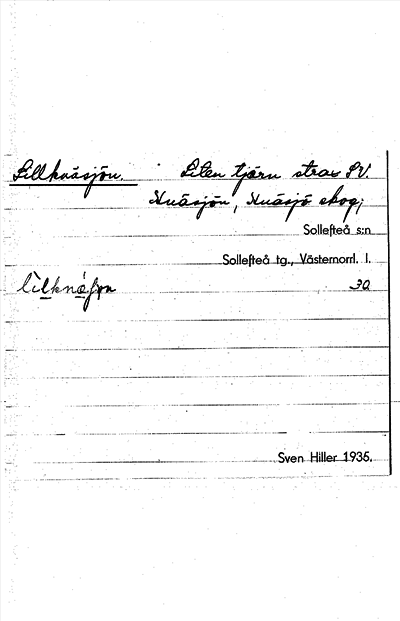 Lillknäsjön. Liten tjärn strax SV.
Knäsjön, Knäsjö skog;
Sollefteå s:n
Sollefteå tg., Västernorrl. l.
30
Sven Hiller 1935.